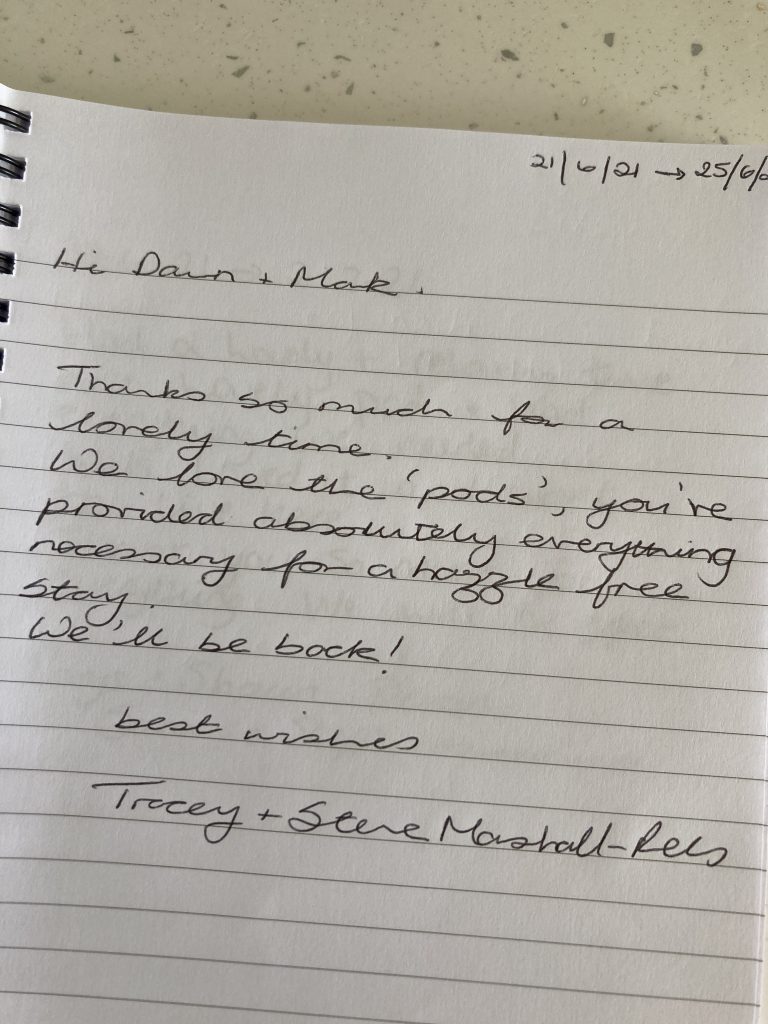 21/6/21 → 25/6/2
Hi Dawn + Mark.
Thanks so much for a
lovely time.
We love the 'pods', you've
provided absolutely everything
necessary for a hazzle free
stay.
We'll be back!
best wishes
Tracey + Steve Marshall-Rees